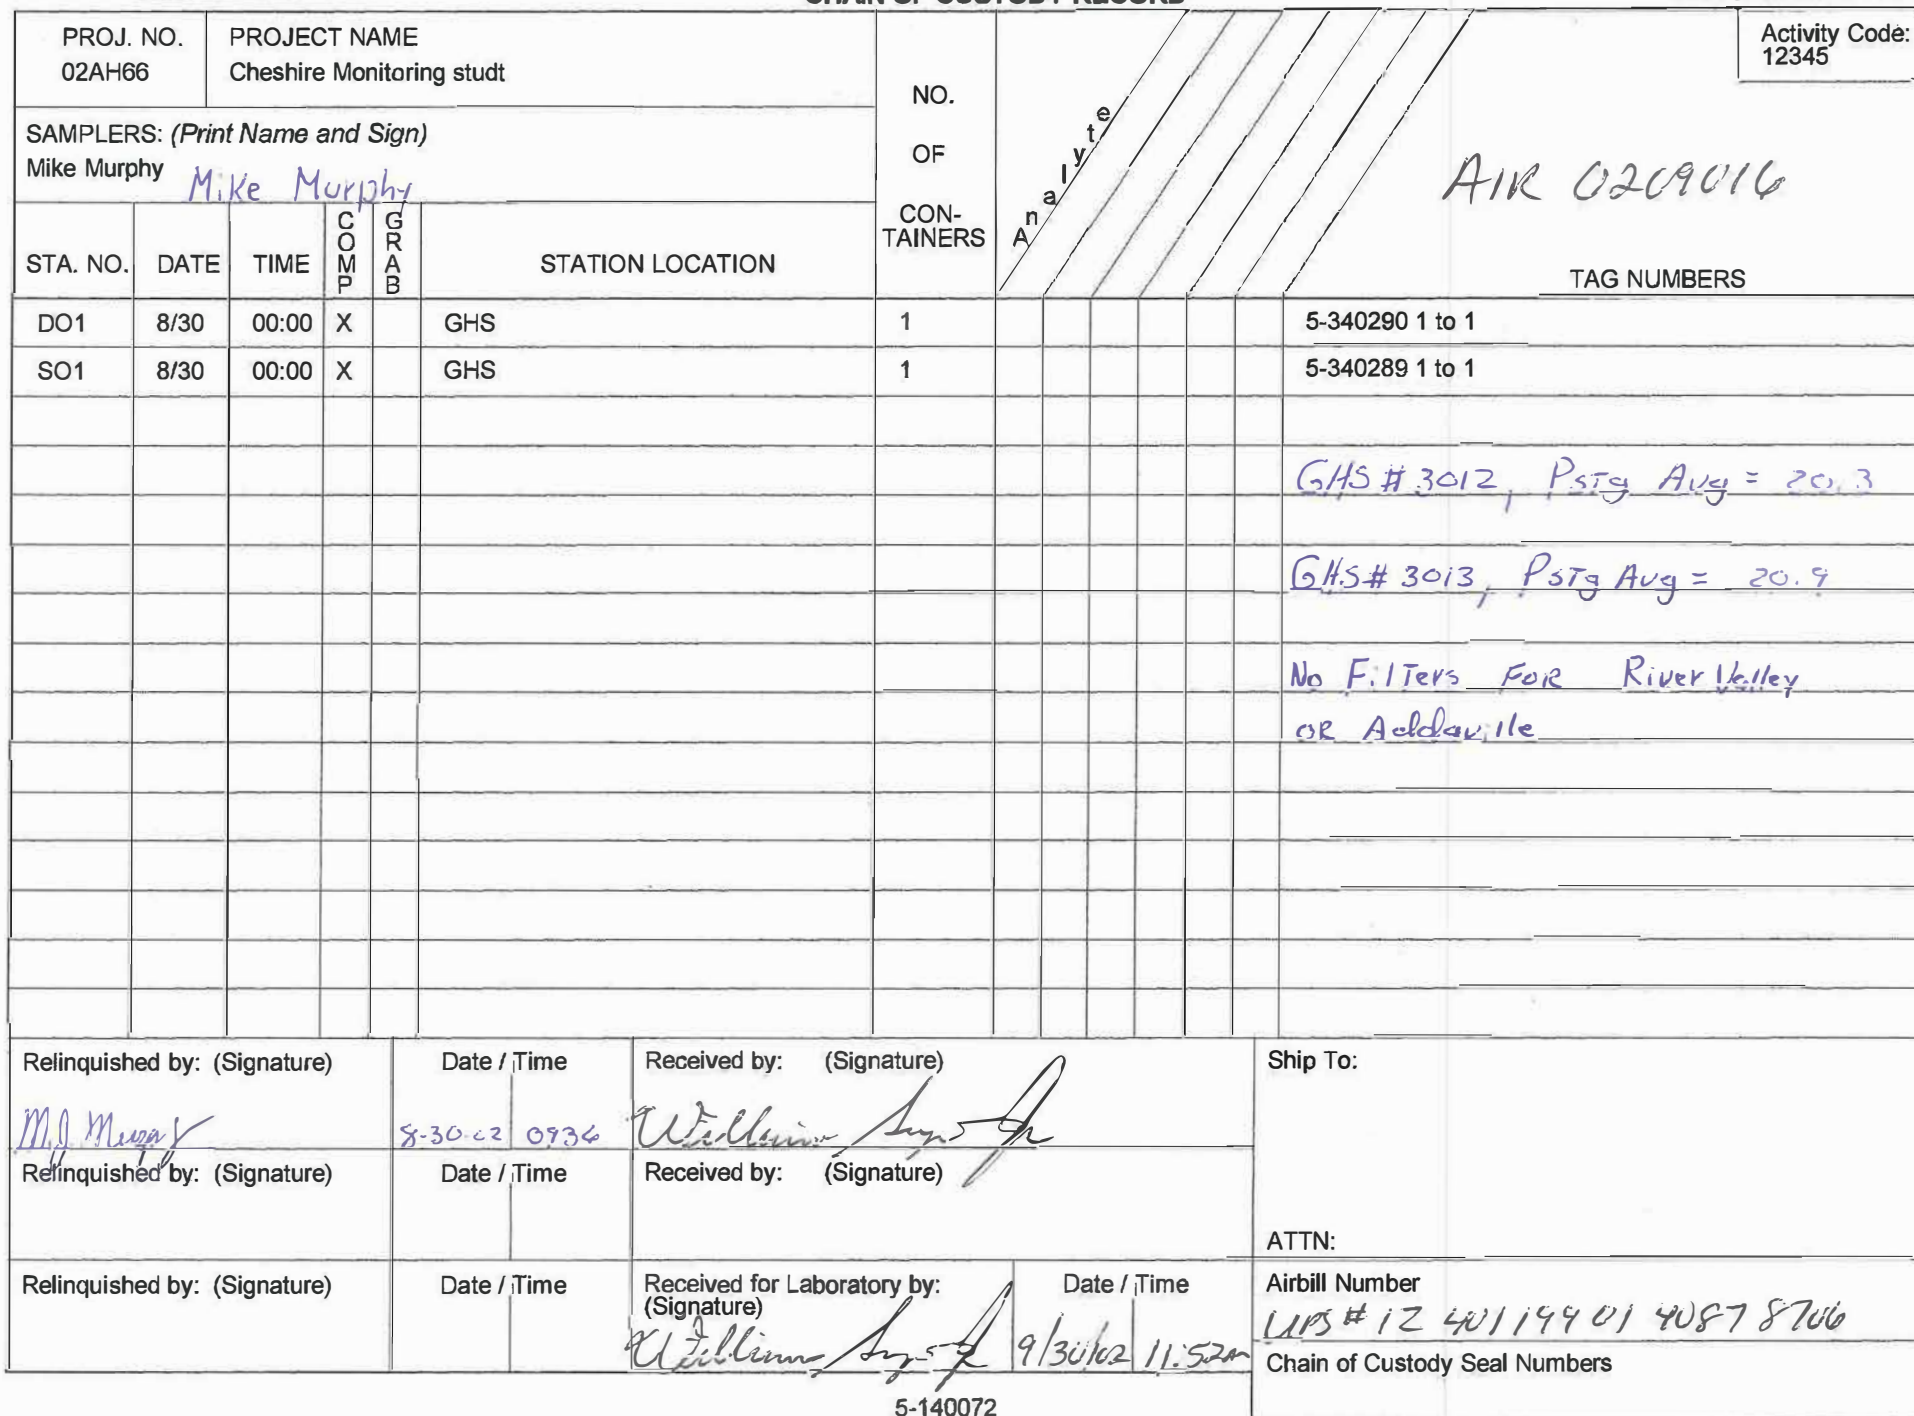 CHAIN OF CUSTODY RECORD
PROJ. NO.
02AH66
PROJECT NAME
Cheshire Monitoring studt
Activity Code:
12345
SAMPLERS: (Print Name and Sign)
Mike Murphy Mike Murphy
NO.
OF
CON-
TAINERS
Analyte
AIR 0209016
STA. NO. DATE TIME COMP GRAB STATION LOCATION
TAG NUMBERS
DO1 8/30 00:00 X GHS 1 5-340290 1 to 1
SO1 8/30 00:00 X GHS 1 5-340289 1 to 1
GHS # 3012, Psig Avg = 20.3
GHS # 3013, Psig Avg = 20.9
No Filters FOR River Valley
OR Addaville
Relinquished by: (Signature) Date / Time Received by: (Signature) Ship To:
8-30-02 0936 William
Relinquished by: (Signature) Date / Time Received by: (Signature)
ATTN:
Relinquished by: (Signature) Date / Time Received for Laboratory by:
(Signature)
William
Date / Time
9/30/02 11:52am
Airbill Number
UPS # 1Z 401 199 01 4087 8706
Chain of Custody Seal Numbers
5-140072